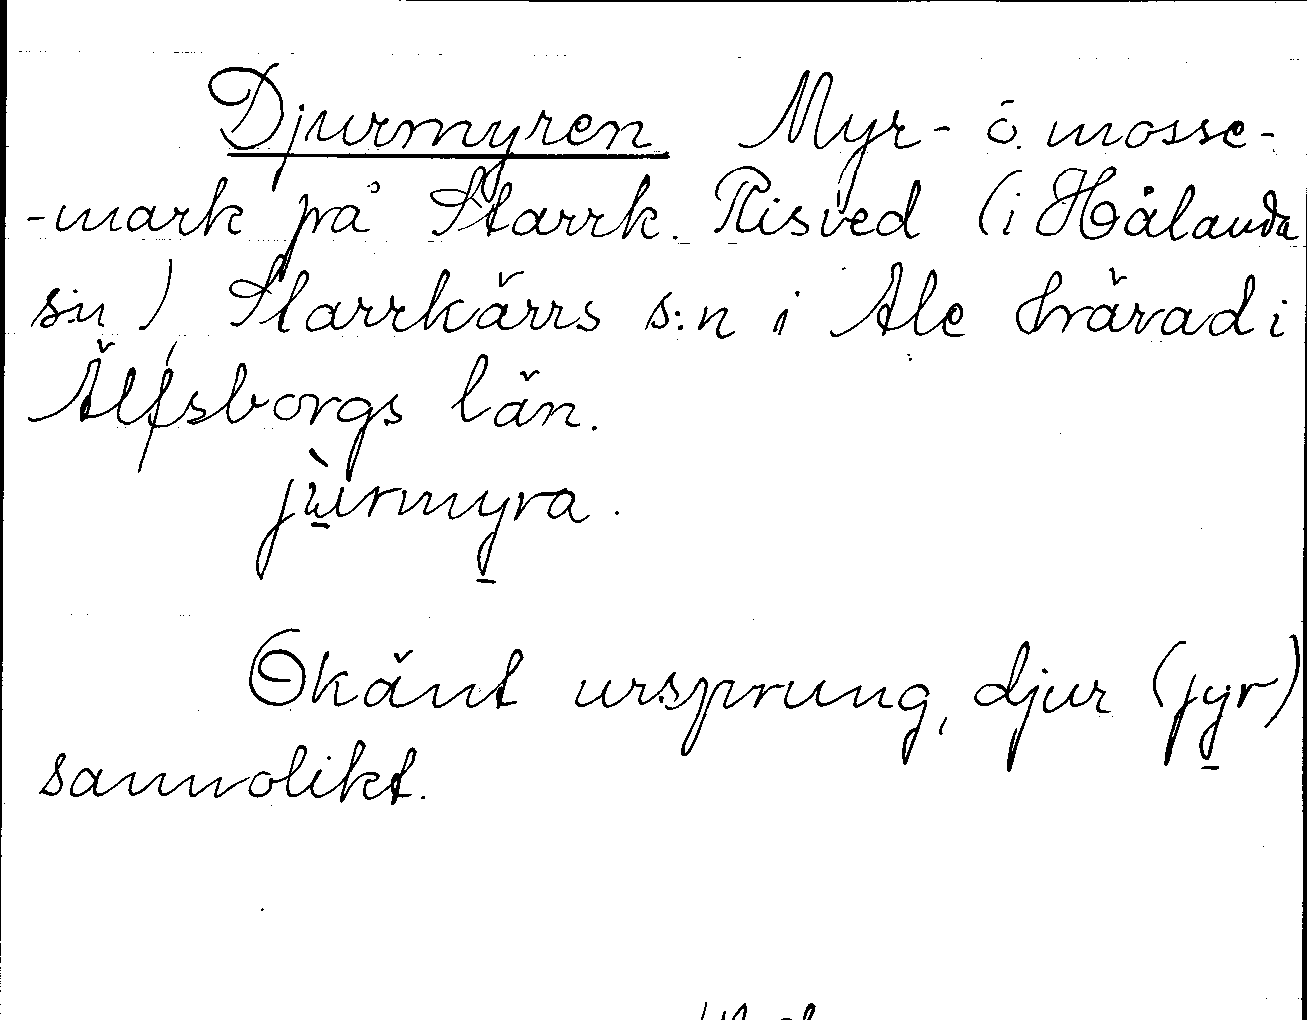 Djurmyren Myr- o. mosse-
-mark på Starrk. Risved (i Hålanda
s:n) Starrkärrs s:n i Ale härad i
Älfsborgs län.
jùrmyra.
Okänt ursprung, djur (jyr)
sannolikt.